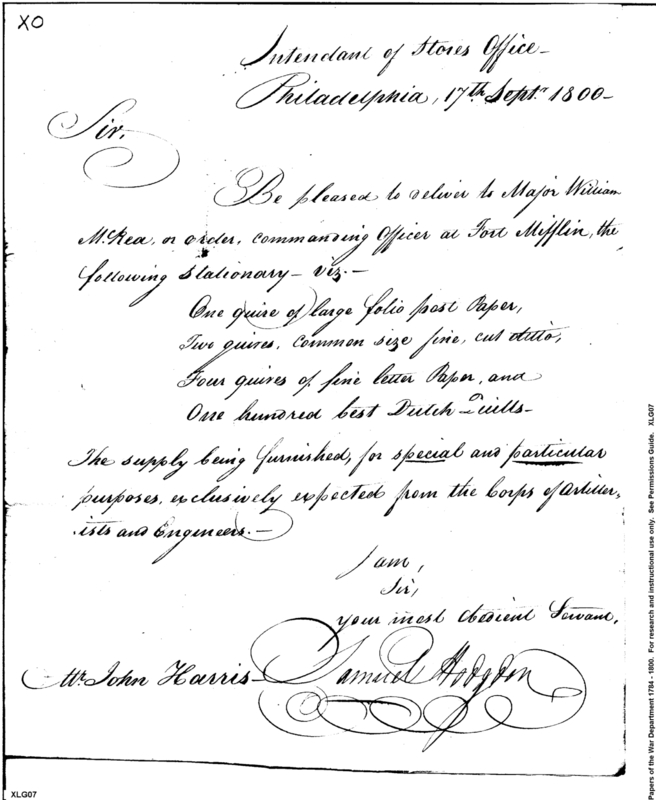 XO
Intendant of Stores Office-
Philadelphia, 17th Septr 1800-
Sir,
Be pleased to deliver to Major William
McRea, or order, commanding Officer at Fort Mifflin, the
following Stationary - viz. -
One quire of large folio post Paper,
Two quires, common size fine, cut ditto,
Four quires of fine letter Paper, and
One hundred best Dutch Quills-
The supply being furnished, for special and particular
purposes, exclusively expected from the Corps of Artiller-
ists and Engineers.-
I am,
Sir,
your most obedient Servant,
Mr John Harris- Samuel Hodgdon
XLG07
Papers of the War Department 1784 - 1800. For research and instructional use only. See Permissions Guide. XLG07